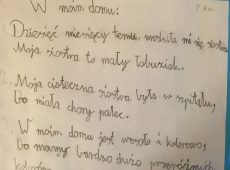 W moim domu:
Dziesięć miesięcy temu urodziła mi się siostra
Moja siostra to mały łobuziak.
Moja cioteczna siostra była w szpitalu,
bo miała chory palec.
W moim domu jest wesoło i kolorowo,
bo mamy bardzo dużo